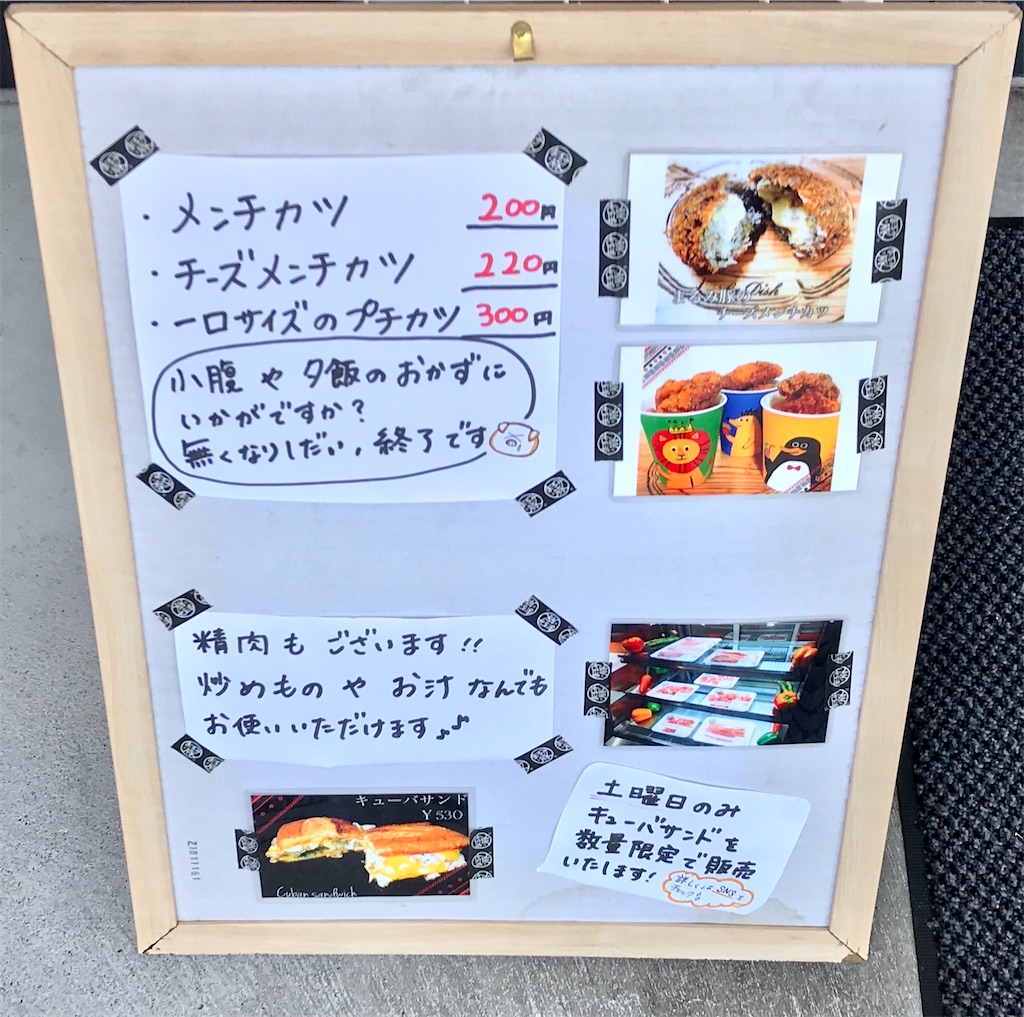 ・メンチカツ 200円
・チーズメンチカツ 220円
・一口サイズのプチカツ 300円
小腹や夕飯のおかずに
いかがですか？
無くなりしだい,終了です
Dish
チーズメンチカツ
精肉もございます!!
炒めものやお汁なんでも
お使いいただけます♪
キューバサンド
¥530
Cuban sandwich
土曜日のみ
キューバサンドを
数量限定で販売
いたします!
詳しくはSNSを
チェック
Z1811161